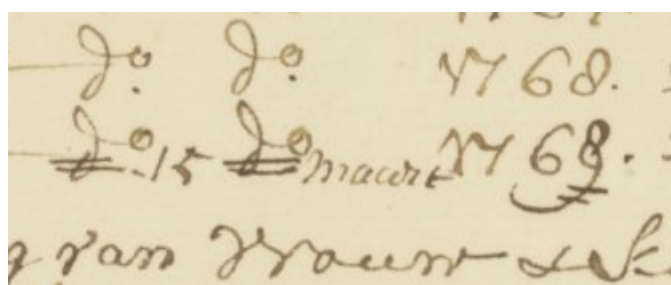 do. do. 1768.
do. 15 do maart 1769.
van Vrouw &